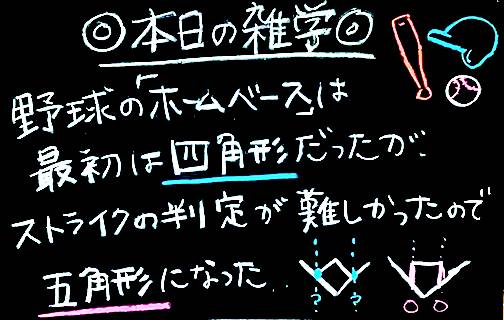 ◎本日の雑学◎
野球の「ホームベース」は
最初は四角形だったが、
ストライクの判定が難しかったので
五角形になった…
? ?